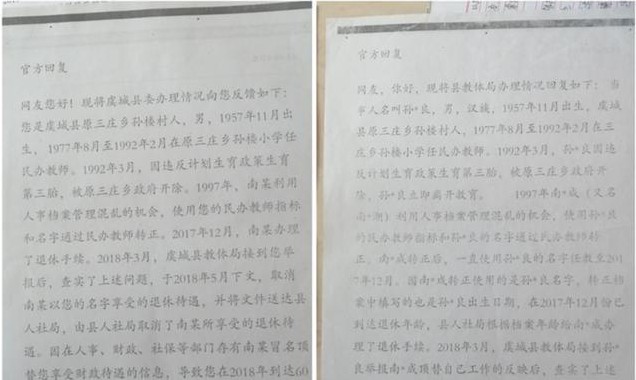 官方回复
网友您好！现将虞城县委办理情况向您反馈如下：
您是虞城县原三庄乡孙楼村人，男，1957年11月出
生，1977年8月至1992年2月在原三庄乡孙楼小学任
民办教师。1992年3月，因违反计划生育政策生育
第三胎，被原三庄乡政府开除。1997年，南某利用
人事档案管理混乱的机会，使用您的民办教师指标
和名字通过民办教师转正。2017年12月，南某办理
了退休手续。2018年3月，虞城县教体局接到您举
报后，查实了上述问题，于2018年5月下文，取消
南某以您的名字享受的退休待遇，并将文件送达县
人社局，由县人社局取消了南某所享受的退休待
遇。因在人事、财政、社保等部门存有南某冒名顶
替您享受财政待遇的信息，导致您在2018年到达60
官方回复
网友，你好，现将县教体局办理情况回复如下：当
事人名叫孙*良，男，汉族，1957年11月出生，虞城
县原三庄乡孙楼村人，1977年8月至1992年2月在三
庄乡孙楼小学任民办教师。1992年3月，孙*良因违
反计划生育政策生育第三胎，被原三庄乡政府开
除，孙*良立即离开教育。 1997年南*成（又名
南*潮）利用人事档案管理混乱的机会，使用孙*良
的民办教师指标和孙*良的名字通过民办教师转
正。南*成转正后，一直使用孙*良的名字任教至201
7年12月。因南*成转正使用的是孙*良名字，转正档
案中填写的也是孙*良出生日期，在2017年12月份已
到达退休年龄，县人社局根据档案年龄给南*成办
理了退休手续。2018年3月，虞城县教体局接到孙*
良举报南*成顶替自己工作的反映后，查实了上述